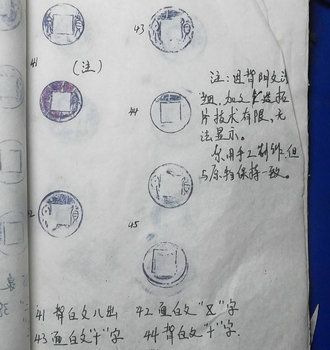 43
41
(注)
44
45
注:因背阴文过
加之
片技术有限,无
法显示。
仅用手工制作,但
与原物保持一致。
41 背白文八出 42 面白文“X”字
43 面白文“十”字 44 背白文“十”字